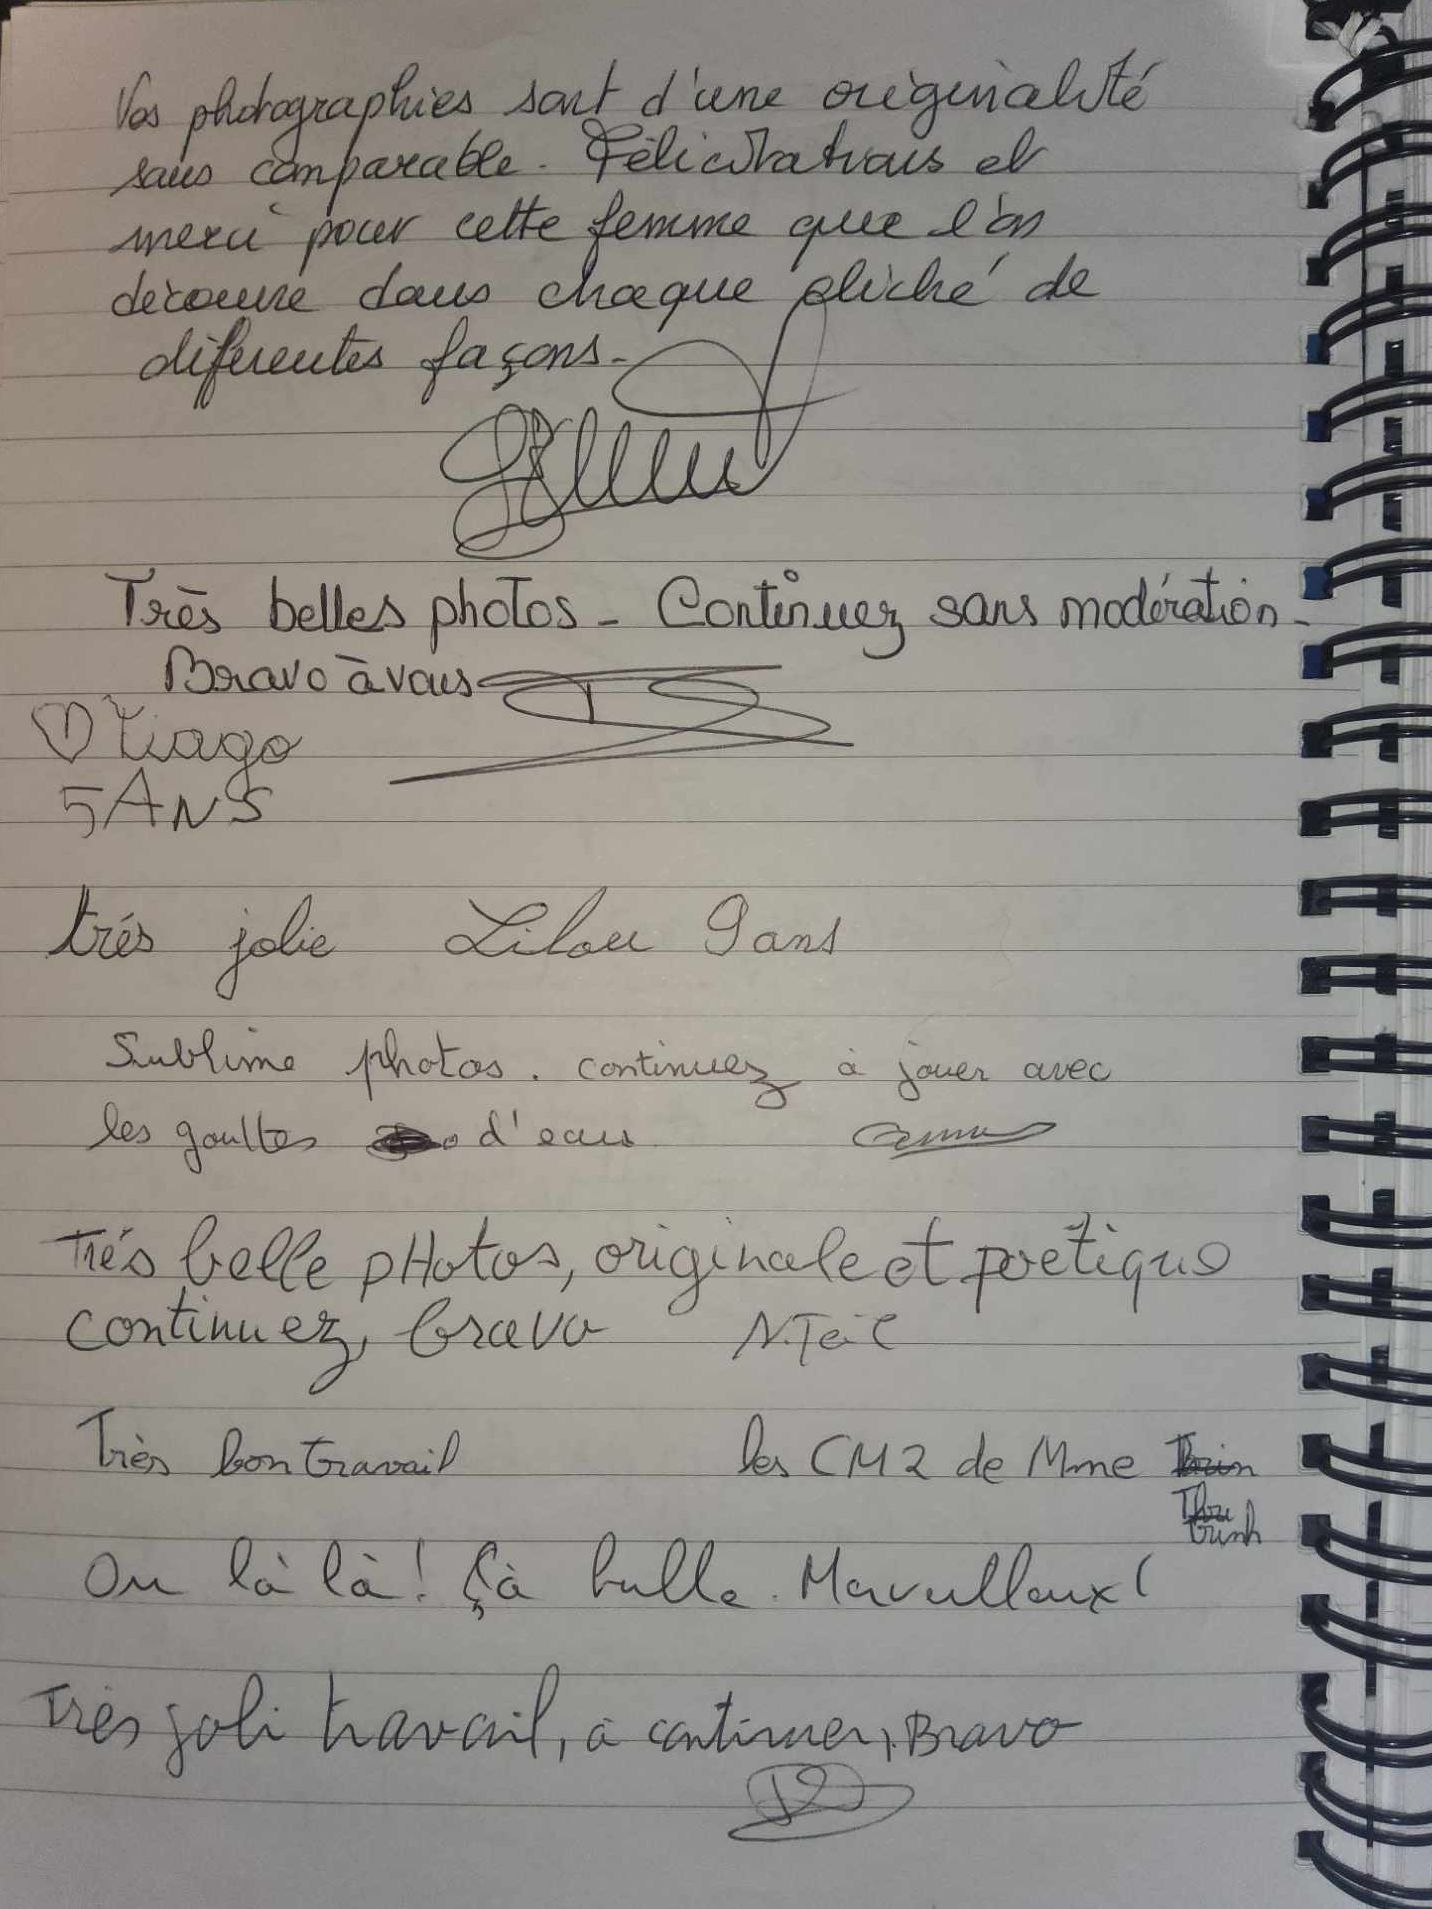 Vos photographies sont d'une originalité
sans comparable. Félicitations et
merci pour cette femme que l'on
découvre dans chaque cliché de
diferentes façons.
Très belles photos - Continuez sans modération -
Bravo à vous
Tiago
5 ANS
trés jolie Lilou 9 ans
Sublime photos. continuez à jouer avec
les gouttes d'eau
Trés belle pHotos, originale et poetique
continuez, bravo
Très bon travail les CM2 de Mme
Trinh
Ou là là! Çà bulle. Merveilleux!
Très joli travail, à continuer, Bravo